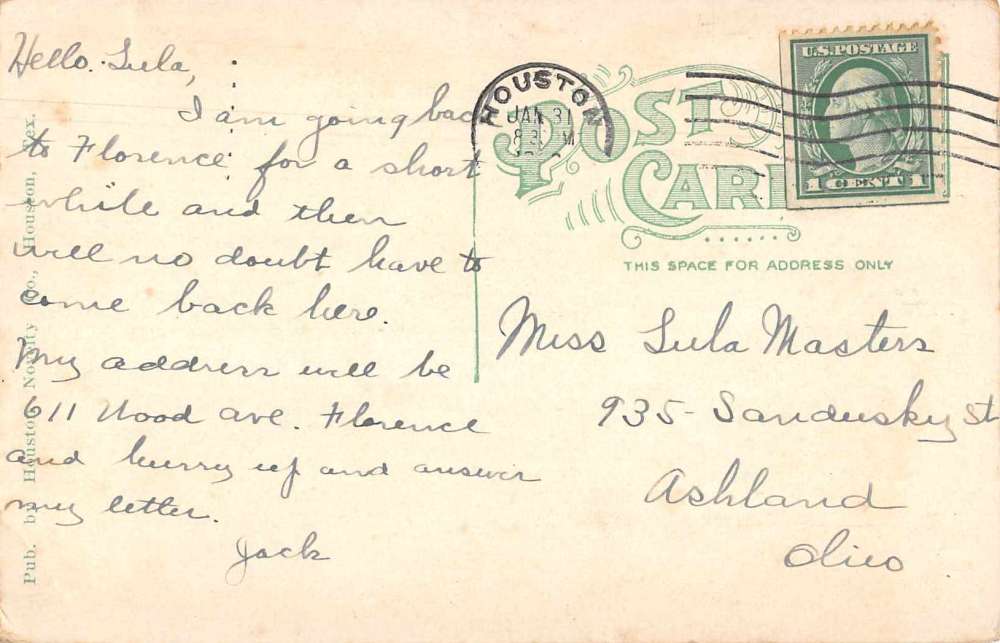 Hello. Lula,
I am going back
to Florence for a short
while and then
will no doubt have to
come back here.
My address will be
611 Wood ave. Florence
and hurry up and answer
my letter.
Jack
Pub. by Houston Novelty Co., Houston, Tex.
HOUSTON
JAN 31
POST
CARD
U.S. POSTAGE
1 CENT 1
THIS SPACE FOR ADDRESS ONLY
Miss Lula Masters
935 Sandusky St
Ashland
Ohio